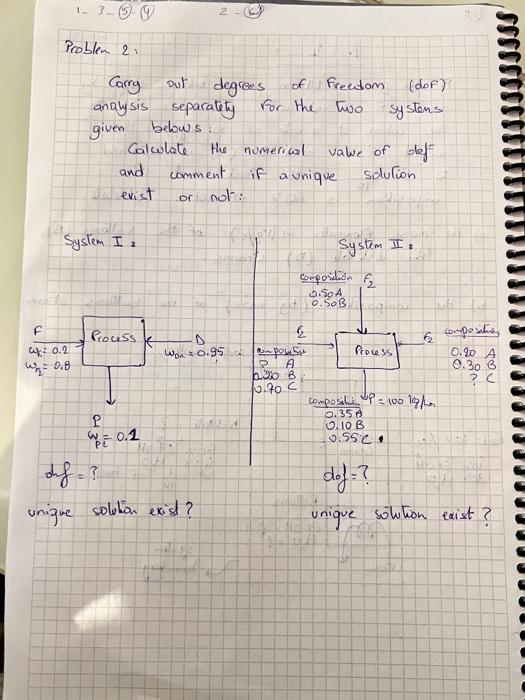 1- 3- 5- 4
2 - 6
Problem 2:
Carry out degrees of freedom (dof)
analysis separately for the two systems
given belows:
Calculate the numerical value of dof
and comment if a unique solution
exist or not:
System I:
System II:
composition F2
0.50A
0.50B
F
Process
D
wF1 = 0.2
wF2 = 0.8
= 0.95
P
= 0.1
dof = ?
unique solution exist?
composition
? A
0.20 B
0.70 C
Process
F2
composition
0.20 A
0.30 B
? C
composition P = 100 kg/hr
0.35A
0.10 B
0.55C
dof = ?
unique solution exist?